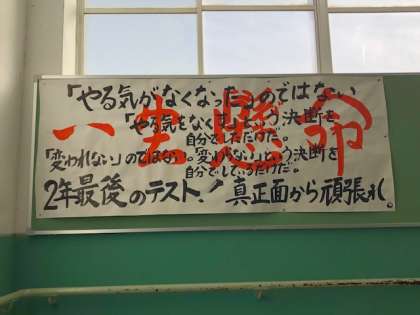 「やる気がなくなった」のではない
「やる気をなくす」という決断を
自分でしただけだ。
一生懸命
「変われない」のではない。「変わらない」という決断を
自分でしているだけだ。
2年最後のテスト! 真正面から頑張れ!